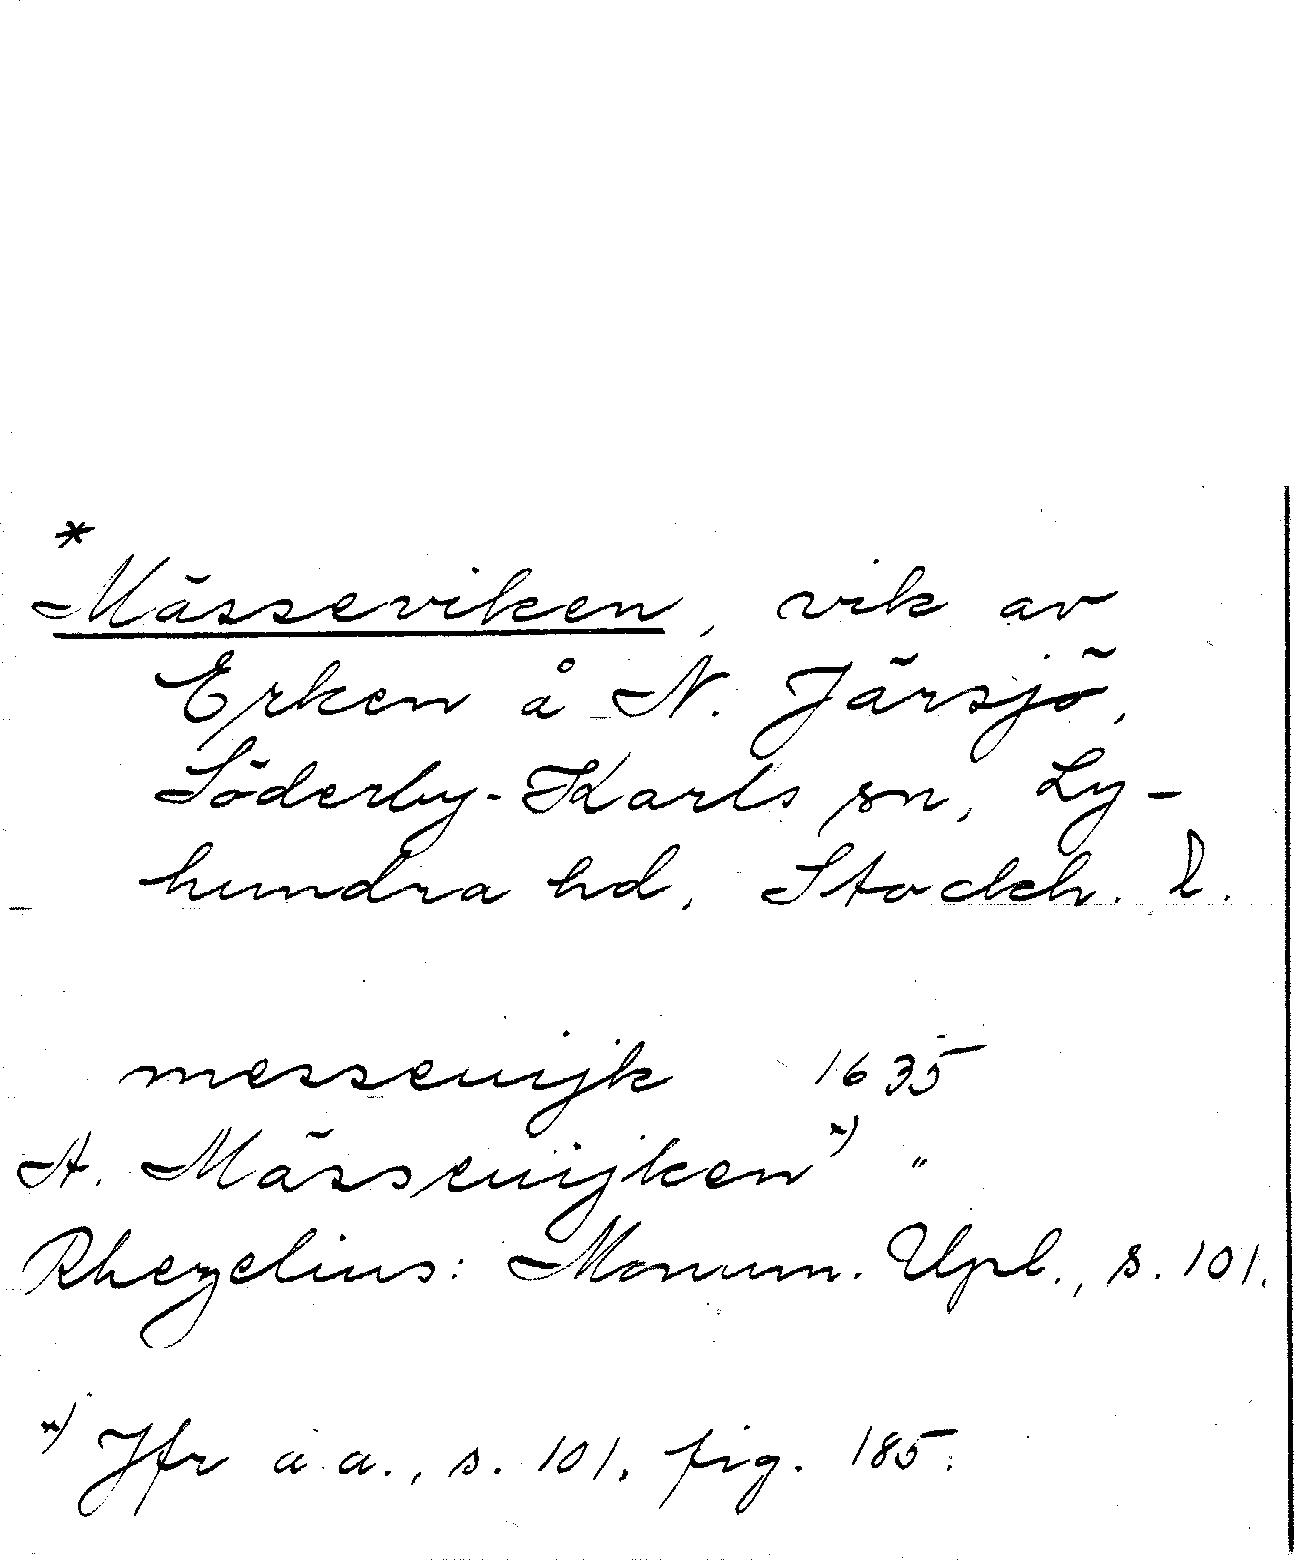 *
Mässeviken, vik av
Erken å N. Järsjö,
Söderby-Karls sn, Ly-
hundra hd, Stockh. l.
messeuijk 1635
A. Mässeuijken *) "
Rhezelius: Monum. Upl., s. 101.
*) Jfr a.a., s. 101, fig. 185.